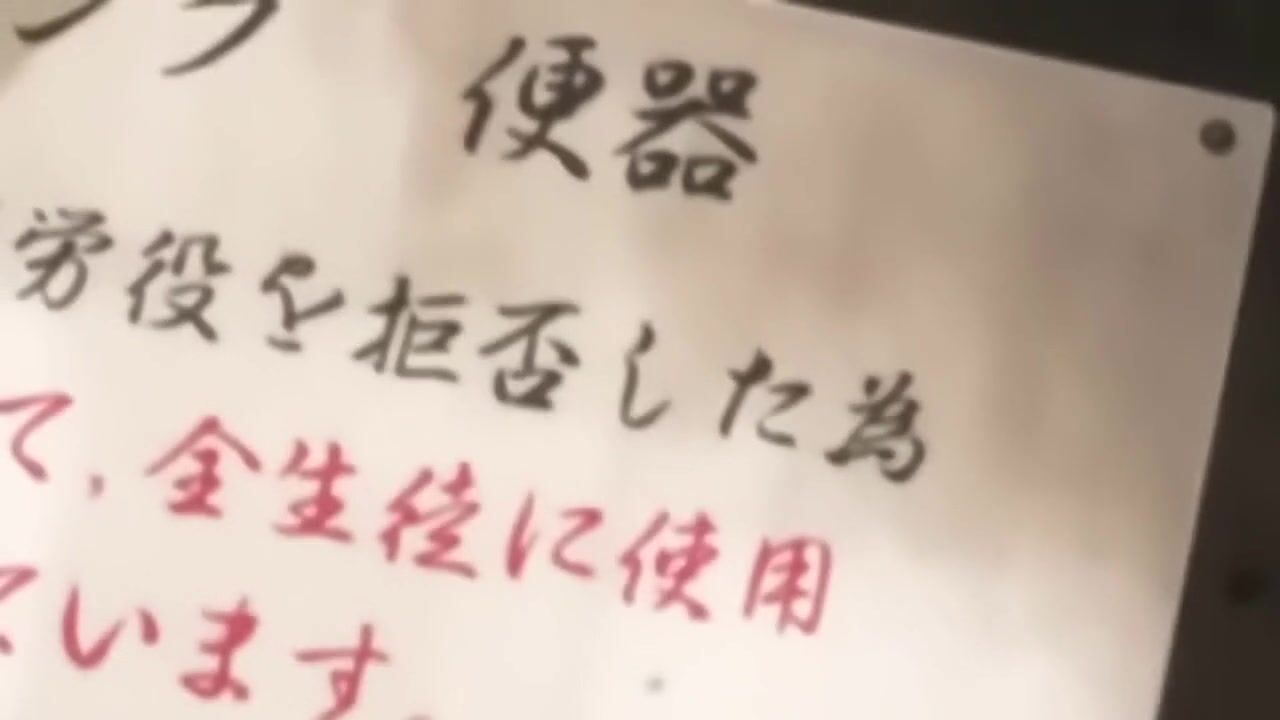 便器
労役を拒否した為
て,全生徒に使用
ています。